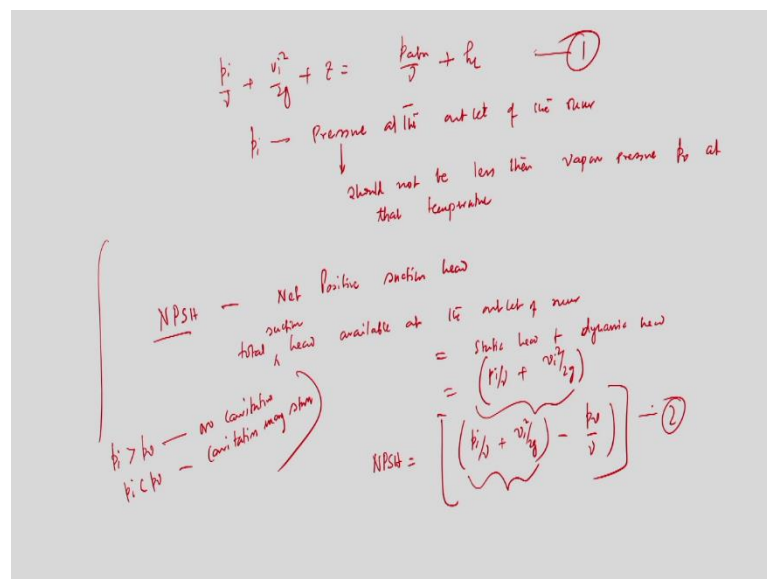 pi/γ + vi²/2g + z = patm/γ + hL — ①
pi → Pressure at the outlet of the runer
↓
should not be less then vapour pressure pv at
that temperature
NPSH — Net Positive suction head
total suction head available at the outlet of runer
= Static head + dynamic head
= (pi/γ + vi²/2g)
pi > pv — no cavitation
pi < pv — cavitation may start
NPSH = [(pi/γ + vi²/2g) − pv/γ] — ②